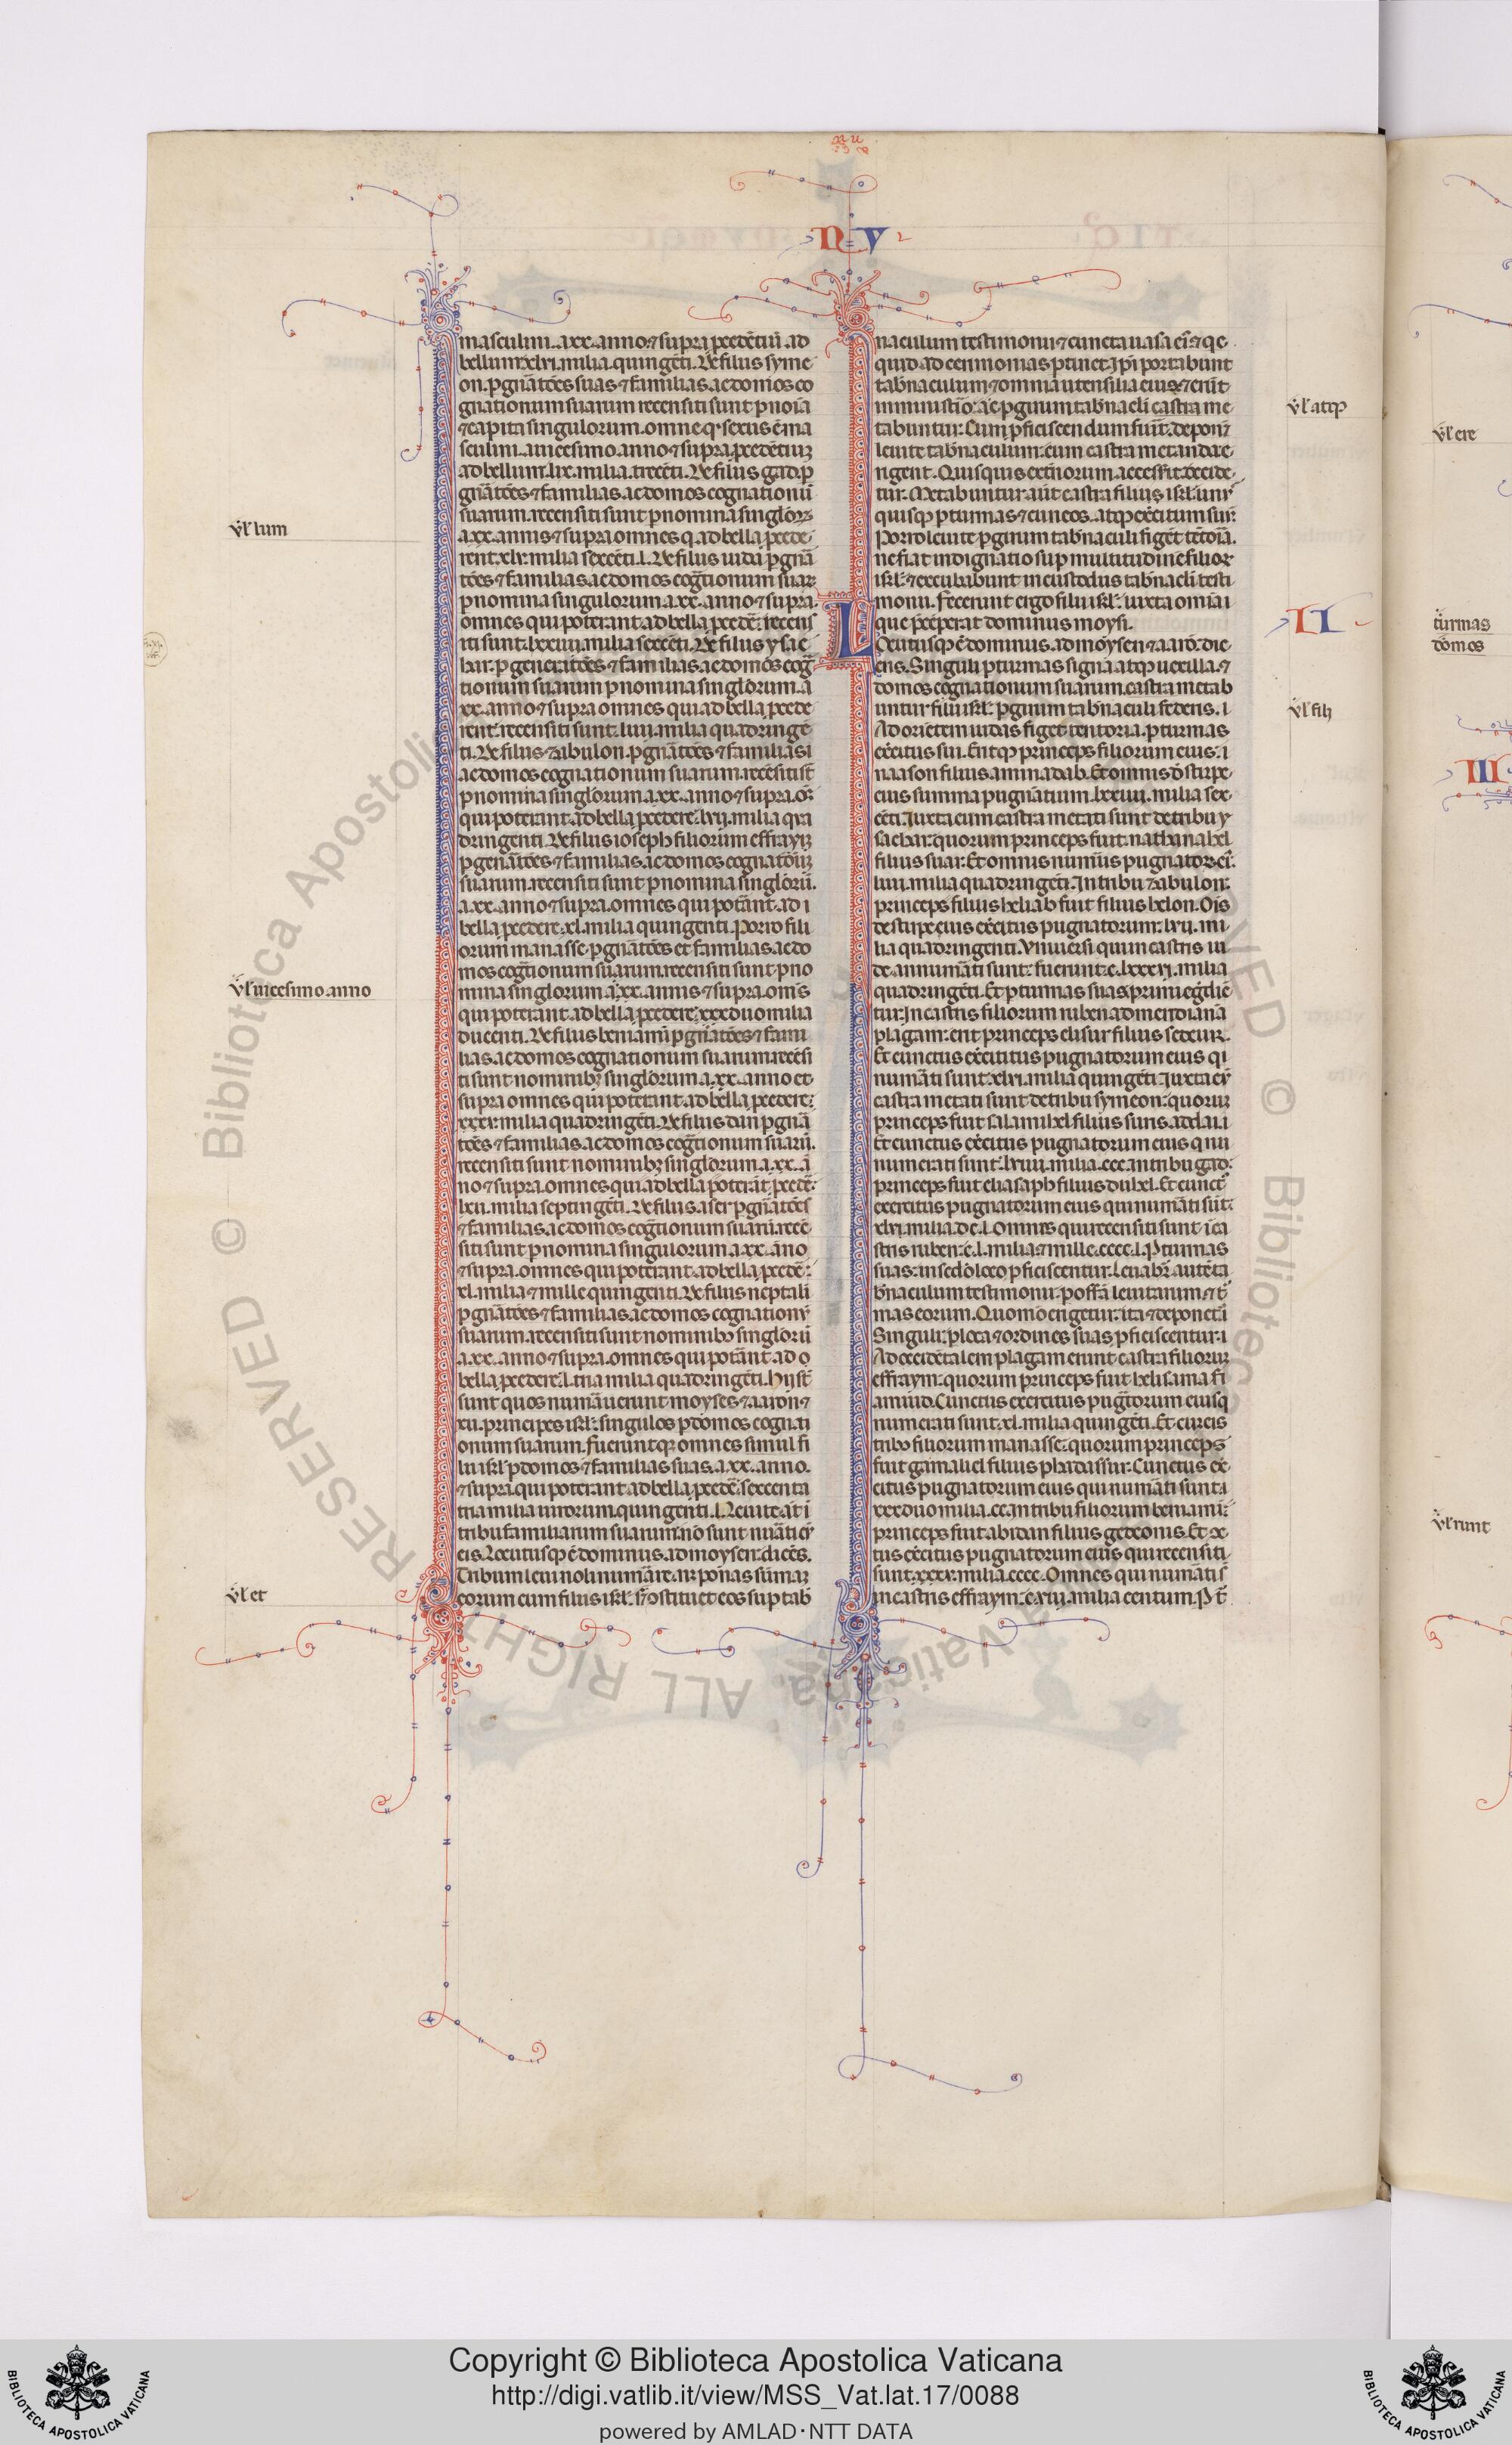 N V
masculini. a .xx. anno ⁊ supra p̱cedētiū ad
bellum: xlvi. milia. quingēti. De filiis syme
on. ꝑ gn̄atōes suas ⁊ familias ac domos co
gnationum suarum recensiti sunt ꝑ noīa
⁊ capita singulorum. omne qͥ sexus ē ma
sculini. a uicesimo anno ⁊ supra. p̱cedētiuꝫ
ad bellum: lix. milia. trecēti. De filiis gad. ꝑ
gn̄atōes ⁊ familias ac domos cognationū
suarum. recensiti sunt ꝑ nomina singloꝝ
a .xx. annis ⁊ supra omnes q̇ ad bella p̱cede
rent: xlv. milia sexcēti. l. De filiis iuda ꝑ gn̄a
tōes ⁊ familias ac domos cog̃tionum suaꝝ
ꝑ nomina singulorum a .xx. anno ⁊ supra.
omnes qui poterant ad bella p̱cedē̄: recens
iti sunt: lxxiiii. milia sexcēti. De filiis ysa
char. ꝑ generatōes ⁊ familias ac domos cog̃
tionum suarum ꝑ nomina singlorum. a
xx. anno ⁊ supra omnes qui ad bella p̱cede
rent: recensiti sunt: liiii. milia quadringē
ti. De filiis zabulon. ꝑ gn̄atōes ⁊ familias
ac domos cognationum suarum. recēsiti st̄
ꝑ nomina singlorum a .xx. anno ⁊ supra. om̄s
qui poterant ad bella p̱cedere: lvij. milia qua
dringenti. De filiis ioseph filiorum effrayꝫ
ꝑ gen̄atōes ⁊ familias. ac domos cognatōuꝫ
suarum. recensiti sunt ꝑ nomina singlorū.
a .xx. anno ⁊ supra. omnes qui pot̄ant ad
bella p̱cedere: xl. milia quingenti. Porro fili
orum manasse. ꝑ gn̄atōes et familias. ac do
mos cog̃tionum suarum recensiti sunt ꝑ no
mina singlorum a .xx. annis ⁊ supra. om̄s
qui poterant ad bella p̱cedere: xxx duo milia
ducenti. De filiis beniamī ꝑ gn̄atōes ⁊ fami
lias. ac domos cognationum suarum. recēsi
ti sunt nominibꝫ singlorum a .xx. anno et
supra omnes qui poterant ad bella p̱cedere:
xxxv. milia quadringēti. De filiis dan ꝑ gn̄a
tōes ⁊ familias. ac domos cog̃tionum suarū.
recensiti sunt nominibꝫ singlorum a .xx. ā
no ⁊ supra. omnes qui ad bella poterāt p̱cedē̄:
lxii. milia septingēti. De filiis aser ꝑ gn̄atōes
⁊ familias. ac domos cog̃tionum suarū. recē
siti sunt ꝑ nomina singulorum a .xx. āno
⁊ supra. omnes qui poterant ad bella p̱cedē̄:
xl. milia ⁊ mille quingenti. De filiis neptali
ꝑ gn̄atōes ⁊ familias. ac domos cognationū
suarum. recensiti sunt nominibꝫ singlorū
a .xx. anno ⁊ supra. omnes qui pot̄ant ad
bella p̱cedere: l. tria milia quadringēti. Hij st̄
sunt quos num̄auerunt moyses ⁊ aaron ⁊
xii. principes isrl̄: singulos ꝑ domos cognati
onum suarum. Fueruntqꝫ omnes simul fi
lii isrl̄ ꝑ domos ⁊ familias suas. a .xx. anno.
⁊ supra. qui poterant ad bella p̱cedē̄: sexcenta
tria milia uirorum. quingenti. l. Leuite at̄ ī
tribu familiarum suarum: nō sunt nūati cū
eis. Locutusqꝫ ē dominus. ad moysen: dicēs.
Tribum leui noli num̄are. nꝫ ponas sūmaꝫ
eorum cum filiis isrl̄. sꝫ ostitue eos suꝑ tab̄
naculum testimonii ⁊ cuncta uasa ei᷒ ⁊ qͥc
quid ad cerimonias ꝑtinet. Ipī portabunt
tab̄naculum ⁊ omnia utensilia eius: ⁊ erūt
in ministīo: ac ꝑ girum tab̄naculi castra me
tabuntur. Cum ꝓficiscendum fuīt: deponēt
leuite tab̄naculum: cum castra metanda e
rigent. Quisquis ext̄norum accessīt: occide
tur. Metabuntur aūt castra filiis isrl̄: unꝰ
quisqꝫ ꝑ turmas ⁊ cuneos. atqꝫ exc̄itum suū:
Porro leuite ꝑ girum tab̄naculi figēt tētoria.
ne fiat indignatio suꝑ multitudinē filioꝝ
isrl̄: ⁊ excubabunt in custodiis tab̄naculi testi
monii. Fecerunt ergo filii isrl̄: iuxta omnia
que p̄ceperat dominus moysi.
Locutusqꝫ ē dominus. ad moysen ⁊ aarō: di
cens. Singuli ꝑ turmas signa atqꝫ uexilla. ⁊
domos cognationum suarum. castra metab
untur filii isrl̄: ꝑ girum tab̄naculi federis.
Ad oriētem iudas figet tentoria. ꝑ turmas
exc̄itus sui. Eritqꝫ princeps filiorum eius:
naason filius aminadab. Et omnis d̄ stirpe
eius summa pugnātium. lxxiiij. milia sex
cēti. Iuxta eum castra metati sunt de tribu y
sachar: quorum princeps fuit: nathanahel
filius suar. Et omnis num̄us pugnatoꝝ ei᷒:
liiii. milia quadringēti. In tribu zabulon:
princeps filiis heliab fuit filius helon. Oīs
de stirpe eius exc̄itus pugnatorum: lvij. mi
lia quadringenti. Vniuersi qui in castris iu
de annum̄ati sunt: fuerunt: c. lxxxvi. milia
quadringēti. Et ꝑ turmas suas: primi eg̃diē
tur. In castris filiorum ruben ad meridianā
plagam: erit princeps elisur filius sedeur.
Et cunctus exc̄ititus pugnatorum eius qi
num̄ati sunt: xlvi. milia quingēti. Iuxta eū
castra metati sunt de tribu symeon: quoruꝫ
princeps fuit salamihel filius surisaddai.
Et cunctus exc̄itus pugnatorum eius qui
numerati sunt: lviiii. milia. ccc. in tribu gad:
princeps fuit eliasaph filius duhel. Et cunct᷒
exercitus pugnatorum eius qui num̄ati sūt:
xlv. milia dc. l. Omnes qui recensiti sunt ī ca
stris ruben: c. l. milia ⁊ mille. cccc. l. ꝑ turmas
suas: in secdo loco ꝓficiscentur. Leuabꝫ autē ta
b̄naculum testimonii: ꝑ offā leuitarum ⁊ t̄
mas eorum. Quomō erigetur: ita ⁊ deponetur
Singuli: ꝑ loca ⁊ ordines suos ꝓficiscentur.
Ad occidētalem plagam erunt castra filioruꝫ
effraym: quorum princeps fuit helisama fi
amiud. Cunctus exercitus pug̃torum eius q̇
numerati sunt: xl. milia quingēti. Et cum eis
tribꝫ filiorum manasse: quorum princeps
fuit gamaliel filius phadassur. Cunctus ex̄
citus pugnatorum eius qui num̄ati sunt:
xxx duo milia. cc. in tribu filiorum beniamī:
princeps fuit abidan filius gedeonis. Et cūc
tus exc̄itus pugnatorum eius qui recensiti
sunt: xxxv. milia. cccc. Omnes qui num̄ati s̄
in castris effraym: c. viij. milia centum. ꝑ t̄
vl̄ lum
vl̄ uicesimo anno
vl̄ et
vl̄ atqꝫ
II
vl̄ filij
vl̄ ere
turmas
domos
III
vl̄ runt
Copyright © Biblioteca Apostolica Vaticana
http://digi.vatlib.it/view/MSS_Vat.lat.17/0088
powered by AMLAD·NTT DATA
BIBLIOTECA APOSTOLICA VATICANA
BIBLIOTECA APOSTOLICA VATICANA
© Biblioteca Apostolica Vaticana. ALL RIGHTS RESERVED